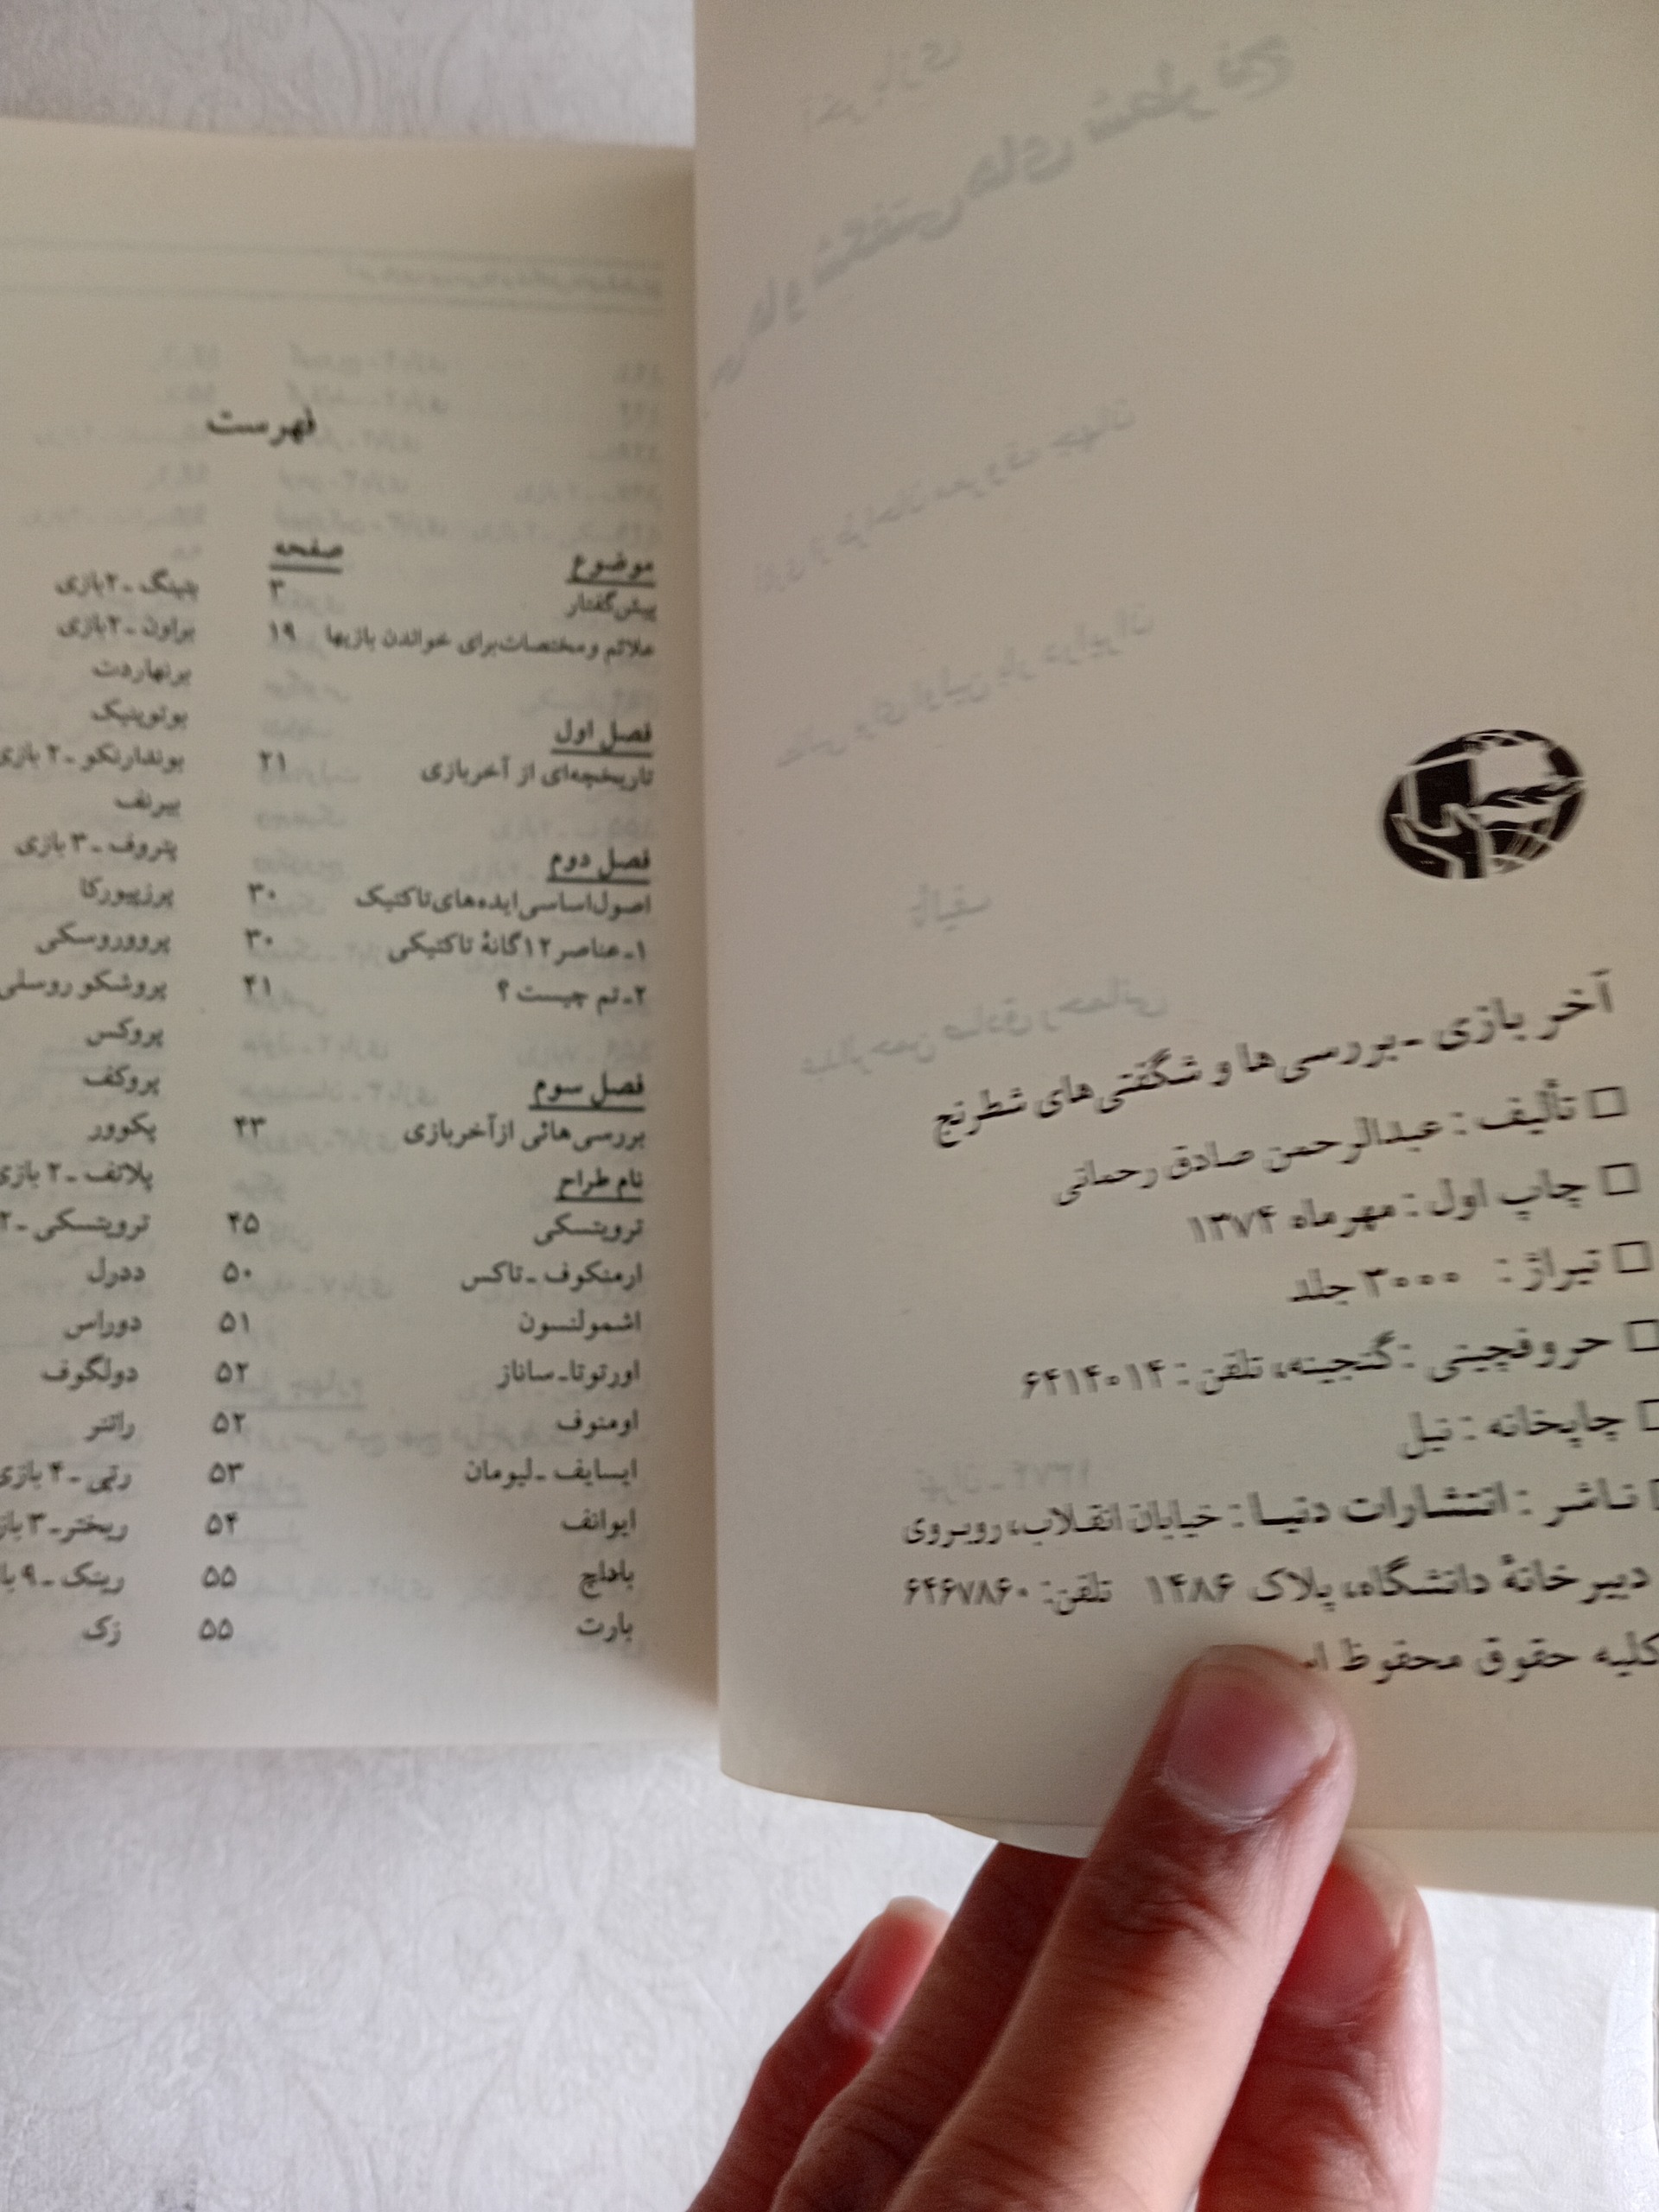 آخر بازی ـ بررسی‌ها و شگفتی‌های شطرنج
□ تألیف : عبدالرحمن صادق رحمانی
□ چاپ اول : مهرماه ۱۳۷۴
□ تیراژ : ۳۰۰۰ جلد
□ حروفچینی : گنجینه، تلفن : ۶۴۱۴۰۱۴
□ چاپخانه : نیل
□ ناشر : انتشارات دنیا : خیابان انقلاب، روبروی
دبیرخانهٔ دانشگاه، پلاک ۱۴۸۶ تلفن: ۶۴۶۷۸۶۰
کلیه حقوق محفوظ
فهرست
موضوع صفحه
پیش‌گفتار ۳
علائم و مختصات برای خواندن بازیها ۱۹
فصل اول
تاریخچه‌ای از آخربازی ۲۱
فصل دوم
اصول اساسی ایده‌های تاکتیک ۳۰
۱ـ عناصر ۱۲ گانهٔ تاکتیکی ۳۰
۲ـ تم چیست ؟ ۴۱
فصل سوم
بررسی‌هائی از آخربازی ۴۳
نام طراح
ترویتسکی ۴۵
ارمنکوف ـ تاکس ۵۰
اشمولنسون ۵۱
اورتوتا ـ ساناز ۵۲
اومنوف ۵۲
ایسایف ـ لیومان ۵۳
ایوانف ۵۴
باداچ ۵۵
بارت ۵۵
ـ ۲بازی
براون ـ ۲بازی
برنهاردت
بوتوینیک
بوندارنکو ـ ۲ بازی
بیرنف
پتروف ـ ۳ بازی
پرزپیورکا
پرووروسکی
پروشکو روسلی
پروکس
پروکف
پکوور
پلاتف ـ ۲ بازی
ترویتسکی ـ ۲
ددرل
دوراس
دولگوف
راتنر
رتی ـ ۴ بازی
ریختر ـ ۳
رینک ـ ۹
زک